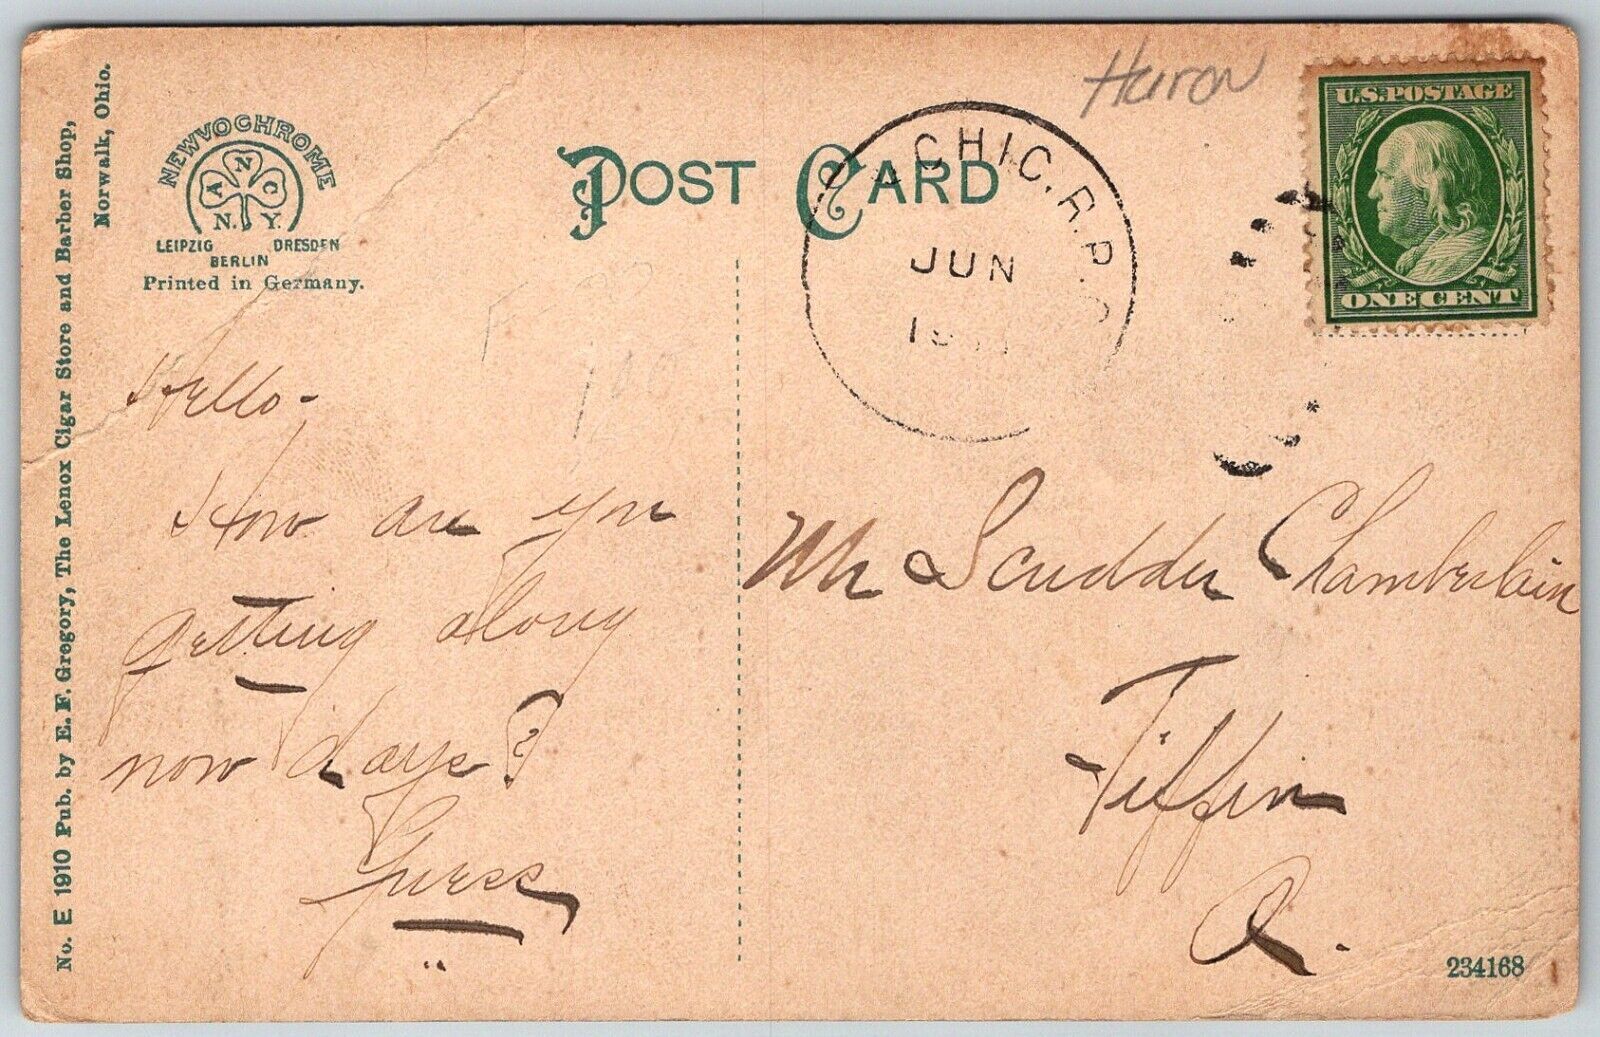 Huron
U.S.POSTAGE
ONE CENT
POST CARD
NEWVOCHROME
A N C
N. Y.
LEIPZIG DRESDEN
BERLIN
Printed in Germany.
CHIC. R.P.O
JUN
No. E 1910 Pub. by E. F. Gregory, The Lenox Cigar Store and Barber Shop,
Norwalk, Ohio.
Hello-
How are you
getting along
now days?
Guess
Mr Scudder Chamberlain
Tiffin
O.
234168